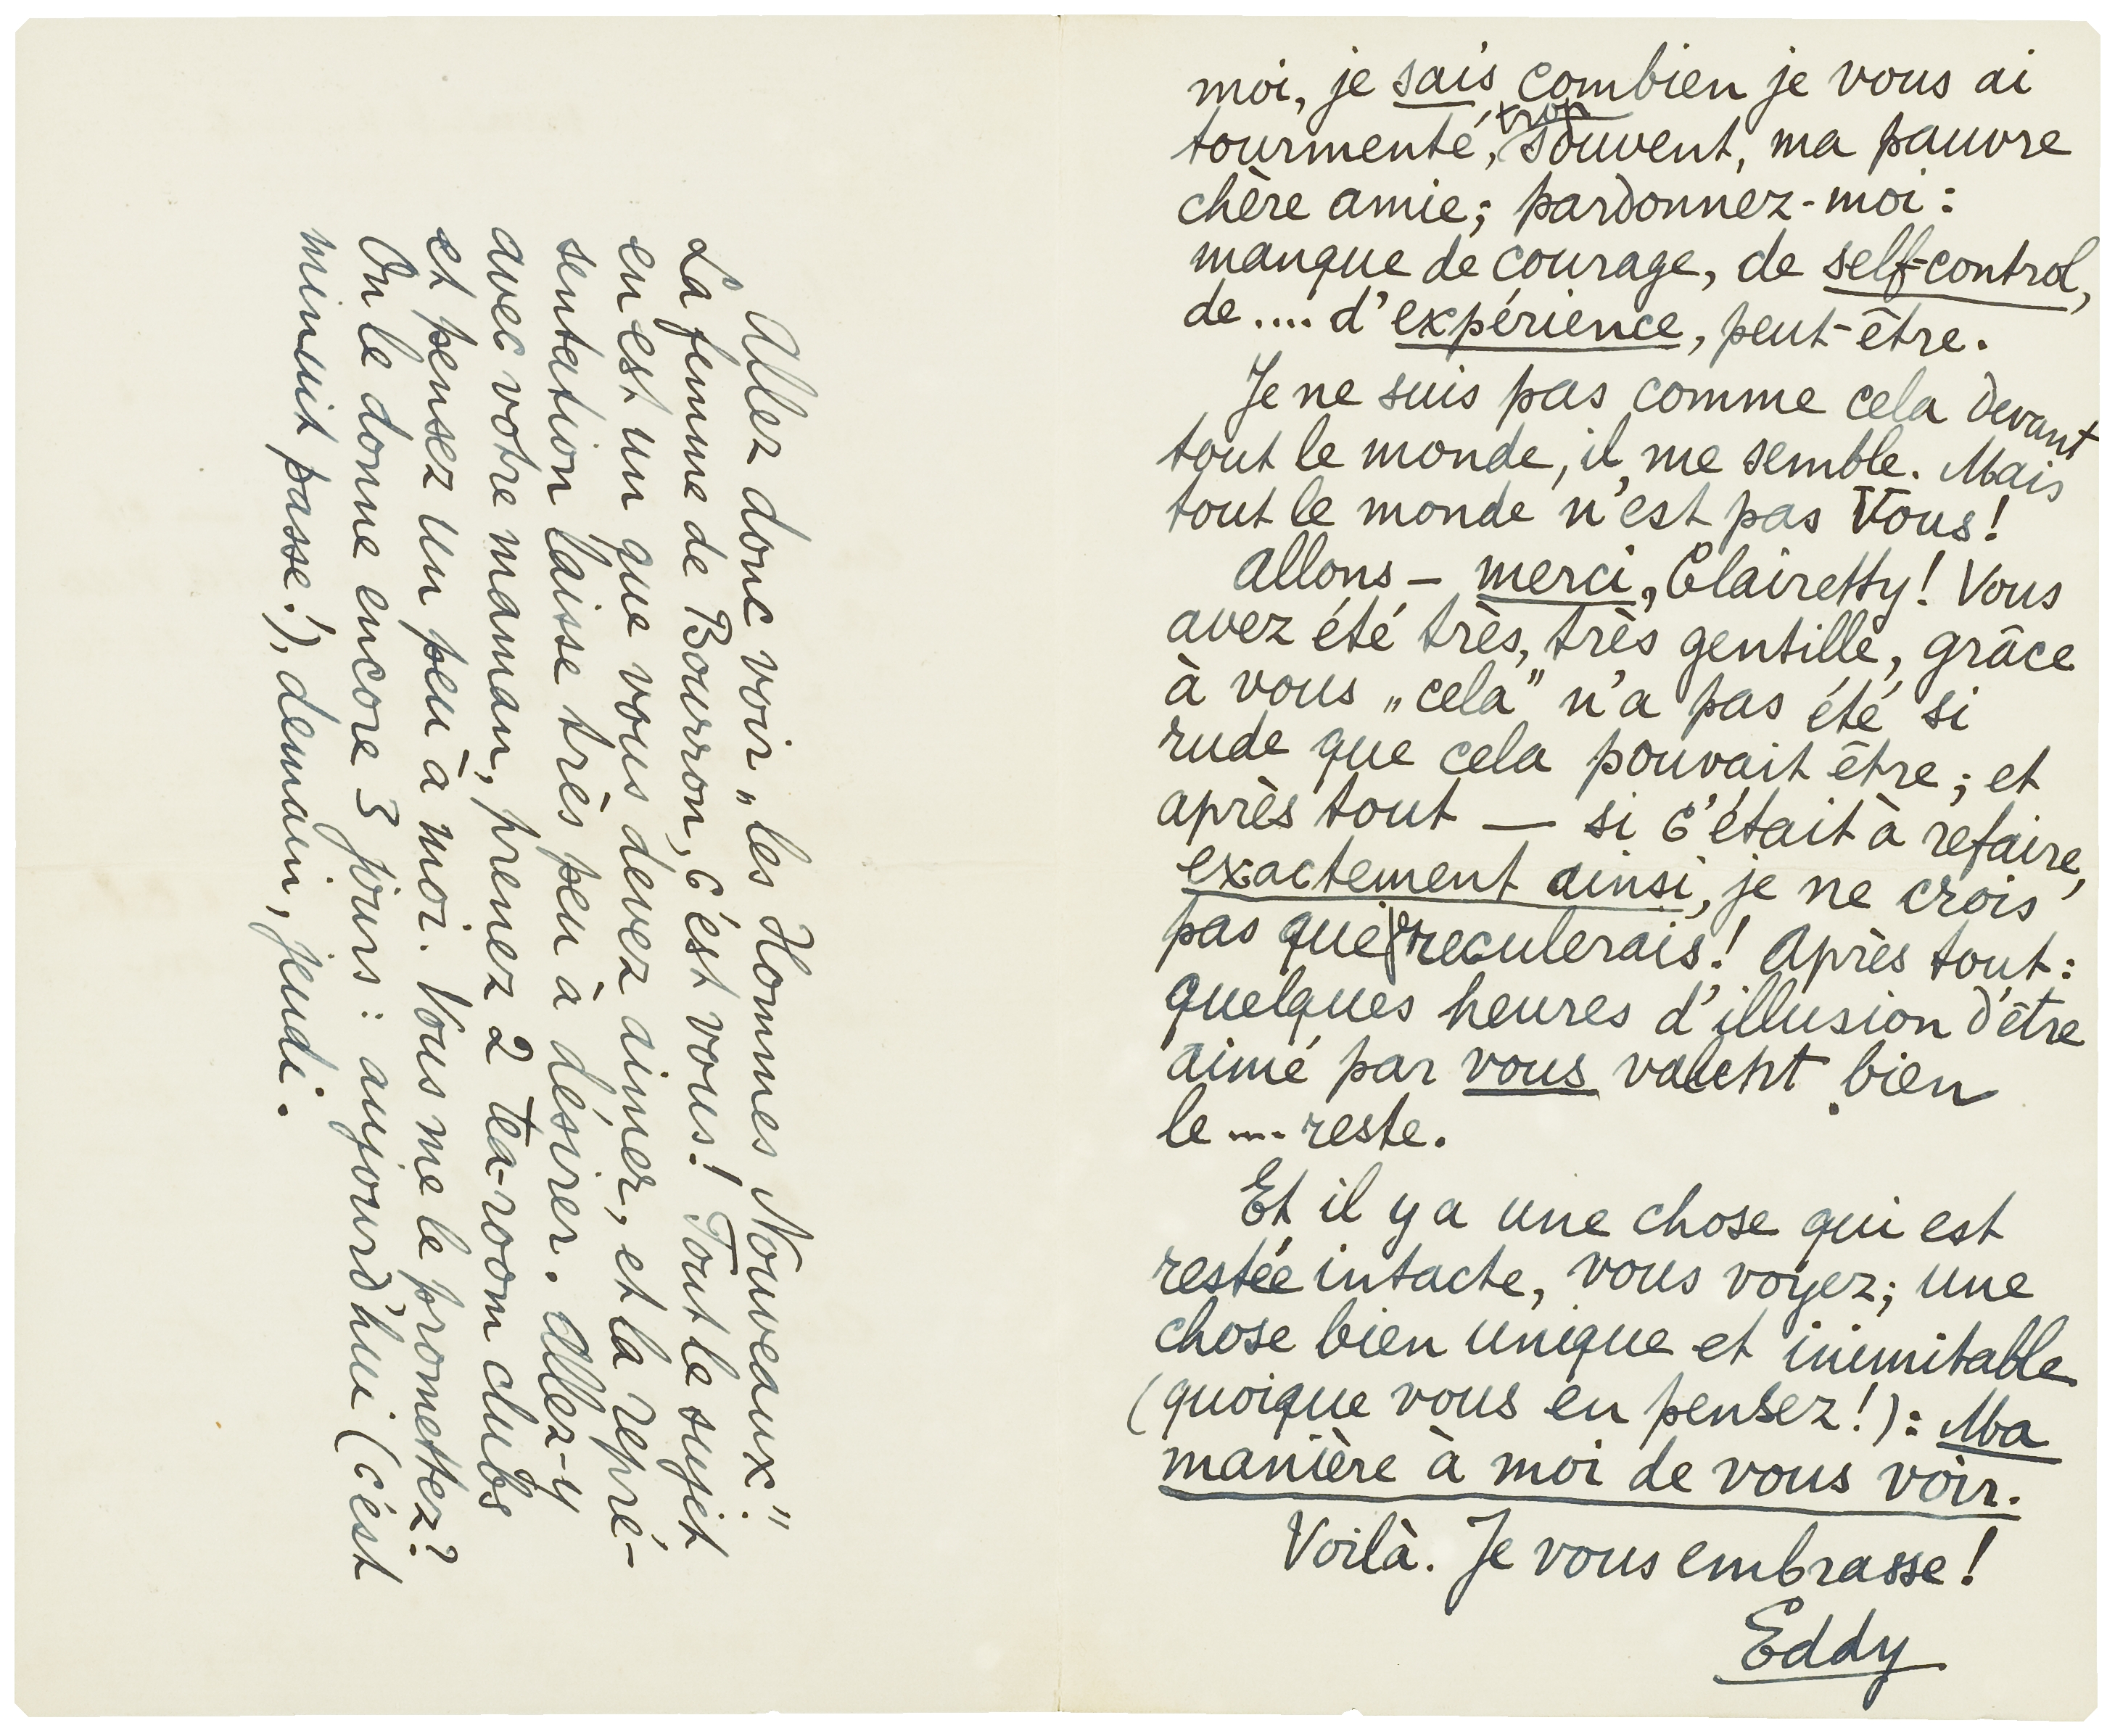 moi, je sais combien je vous ai
tourmenté, trop souvent, ma pauvre
chère amie; pardonnez-moi:
manque de courage, de self-control,
de .... d'expérience, peut-être.
Je ne suis pas comme cela devant
tout le monde, il me semble. Mais
tout le monde n'est pas Vous!
Allons – merci, Clairetty! Vous
avez été très, très gentille, grâce
à vous „cela" n'a pas été si
rude que cela pouvait être; et
après tout — si c'était à refaire,
exactement ainsi, je ne crois
pas que je reculerais! Après tout:
quelques heures d'illusion d'être
aimé par vous valent bien
le .... reste.
Et il y a une chose qui est
restée intacte, vous voyez; une
chose bien unique et inimitable
(quoique vous en pensez!): Ma
manière à moi de vous voir.
Voilà. Je vous embrasse!
Eddy
Allez donc voir „les Hommes Nouveaux".
La femme de Bourron, c'est vous! Tout le sujet
en est un que vous devez aimer, et la repré-
sentation laisse très peu à désirer. Allez-y
avec votre maman, prenez 2 tea-room clubs
et pensez un peu à moi. Vous me le promettez?
On le donne encore 3 jours: aujourd'hui (c'est
minuit passé!), demain, jeudi.